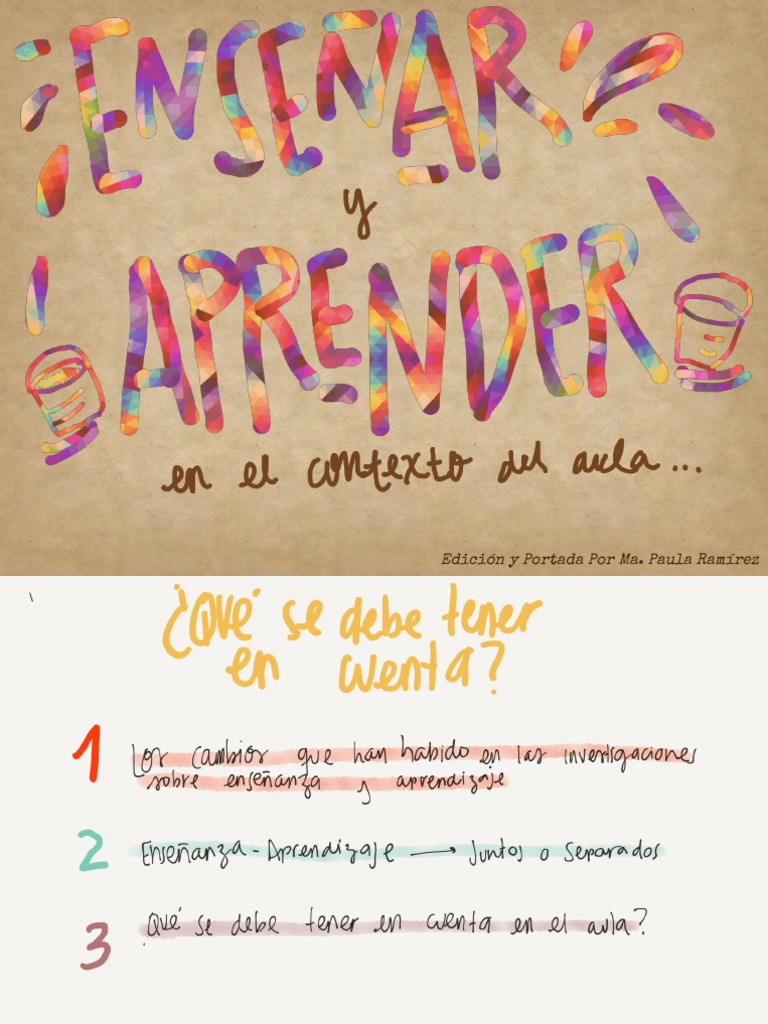 ENSEÑAR
y
APRENDER
en el contexto del aula...
Edición y Portada Por Ma. Paula Ramírez
¿Qué se debe tener
en cuenta?
1 Los cambios que han habido en las investigaciones
sobre enseñanza y aprendizaje
2 Enseñanza - Aprendizaje → Juntos o separados
3 ¿Qué se debe tener en cuenta en el aula?